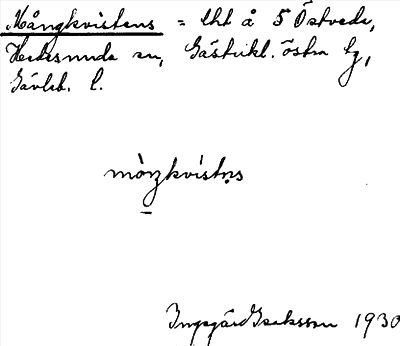 Mångkvistens = lht å 5 Östveda,
Hedesunda sn, Gästrikl. östra tg,
Gävleb. l.
mòŋkvístn̥s
Ingegärd Isaksson 1930